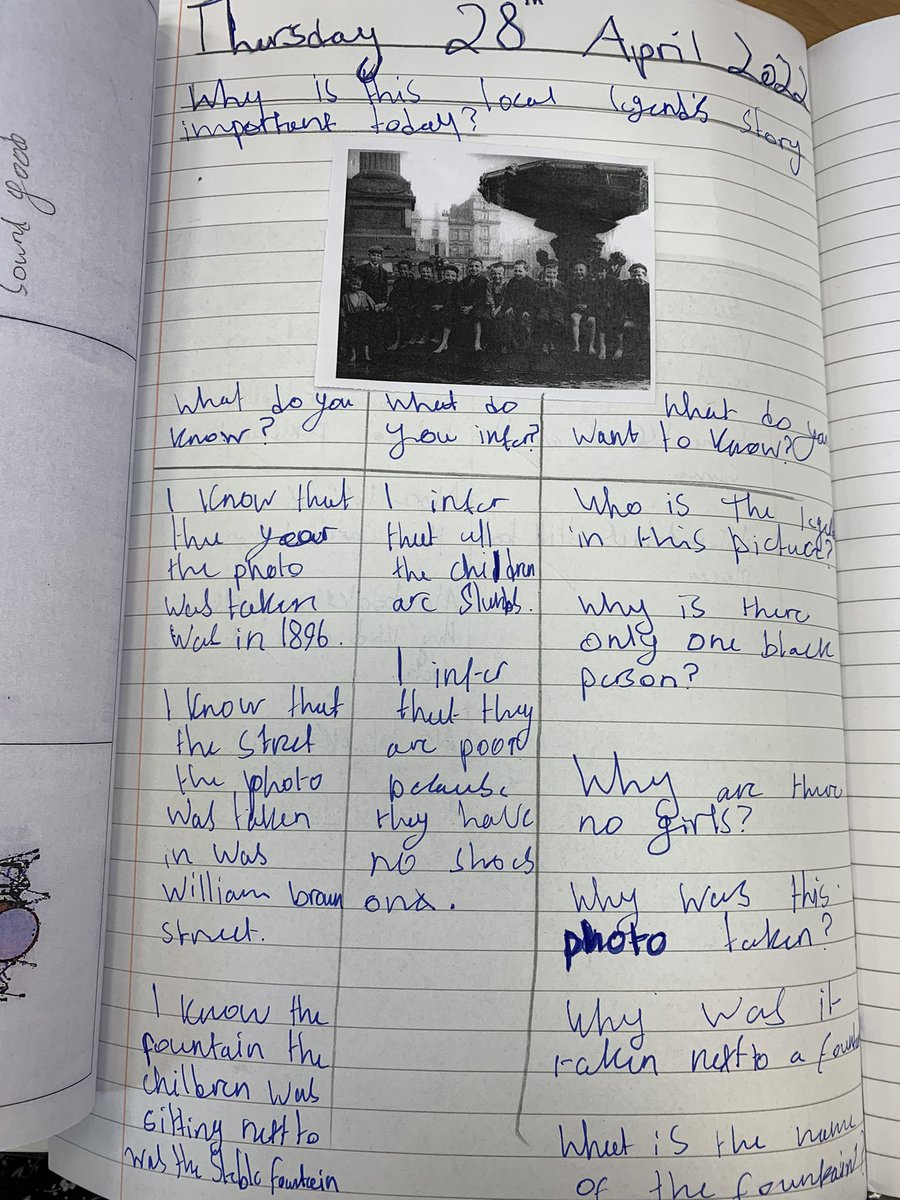 Sound good
Thursday 28th April 2022
Why is this local legend's story
important today?
What do you
know?
I know that
the year
the photo
was taken
was in 1896.
I know that
the street
the photo
was taken
in was
William brown
street.
I know the
fountain the
chilbren was
sitting next to
was the Steble fountain
What do
you infer?
I infer
that all
the children
are
I infer
that they
are poor
because
they have
no shoes
on.
What do you
want to know?
Who is the
in this picture?
Why is there
only one black
person?
Why are there
no girls?
Why was this
photo taken?
Why was it
taken next to a
What is the name
of the fountain?